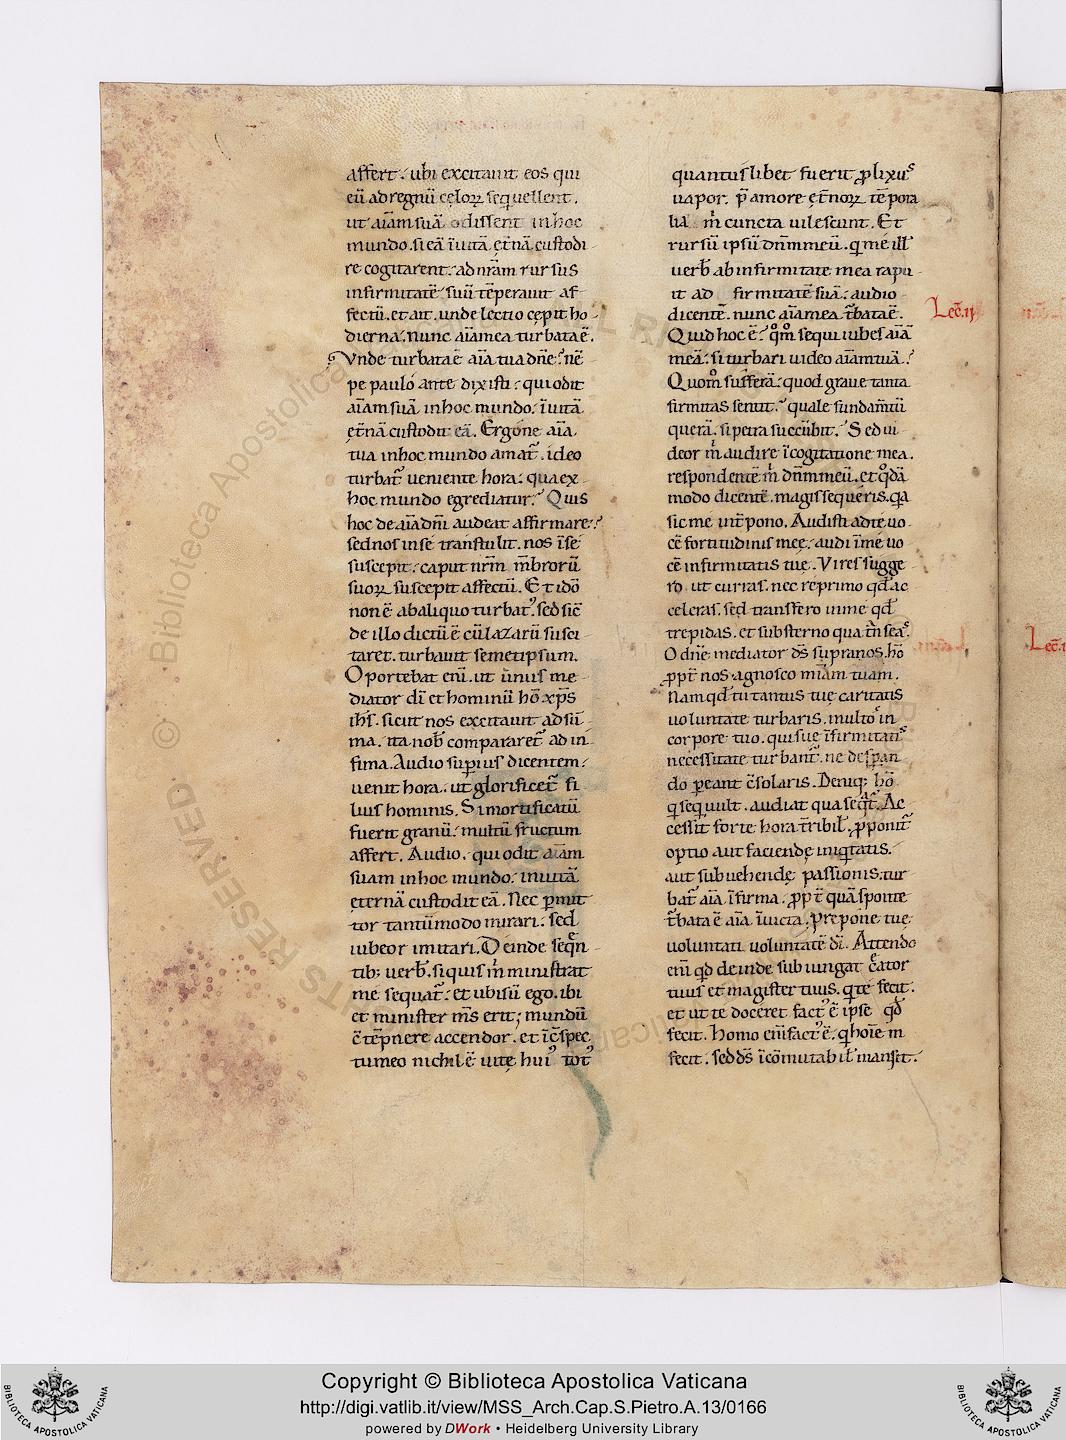 affert. ubi excitauit eos qui
eū ad regnū cęloꝝ seq̄uellent.
ut aīam suā odissent in hoc
mundo. si eā ī uitā ęt̄nā custodi
re cogitarent. ad nr̄am rursus
infirmitatē suū tēperauit af
fectū. et ait. unde lectio cepit ho
dierna. Nunc aīa mea turbata ē.
Vnde turbata ē aīa tua dn̄e? nē
pe paulo ante dixisti. qui odit
aīam suā in hoc mundo. ī uitā
ęt̄nā custodit eā. Ergone aīa
tua in hoc mundo amat᷑. ideo
turbat᷑ ueniente hora. qua ex
hoc mundo egrediatur? Quis
hoc de aīa dn̄i audeat affirmare?
sed nos in se transtulit. nos ī se
suscepit. caput nr̄m mēbrorū
suoꝝ suscepit affectū. Et idō
non ē ab aliquo turbat᷒. sed sic̄
de illo dictū ē cū lazarū susci
taret. turbauit semetipsum.
Oportebat enī. ut unus me
diator dī et hominū hō xp̄s
ih̄s. sicut nos excitauit ad sū
ma. ita nob̄ compararet᷑ ad in
fima. Audio sup̄ius dicentem.
uenit hora. ut glorificet᷑ fi
lius hominis. Si mortificatū
fuerit granū. multū fructum
affert. Audio. qui odit aīam
suam in hoc mundo. in uitā
ęternā custodit eā. Nec p̄mit
tor tantūmodo mirari. sed
iubeor imitari. Deinde seq̄n
tib; uerb̄. si quis m̄ ministrat
me sequat᷑. et ubi sū ego. ibi
et minister m̄s erit; mundū
c̄tēpnere accendor. et ī c̄spec
tu meo nichil ē uitę hui᷒ tot᷒
quantus libet fuerit ꝓlixus
uapor. p̄ amore ęt̄noꝝ tēpora
lia m̄ cuncta uilescunt. Et
rursū ipsū dn̄m meū. q̄ me ill᷒
uerb̄ ab infirmitate mea rapu
it ad firmitatē suā. audio
dicentē. nunc aīa mea t᷒bata ē.
Quid hoc ē? qm̊o sequi iubes aīā
meā. si turbari uideo aīam tuā?
Quom̊ sufferā. quod graue tanta
firmitas sentit? quale fundam̄tū
querā. si petra succūbit? Sed ui
deor m̄ audire ī cogitatione mea.
respondentē m̄ dn̄m meū. et q̊dā
modo dicentē. magis sequeris. q̄a
sic me int̄pono. Audisti ad te uo
cē fortitudinis meę. audi ī me uo
cē infirmitatis tuę. Vires sugge
ro. ut curras. nec reprimo qd̄ ac
celeras. sed transfero in me qd̄
trepidas. et substerno qua t̄nseas.
O dn̄e mediator ds̄ supra nos. hō
ꝓpt̄ nos. agnosco mīam tuam.
Nam qd̄ tu tantus tuę caritatis
uoluntate turbaris. multos in
corpore tuo. qui suę īfirmitatis
necessitate turbant᷑. ne despan
do p̄eant c̄solaris. Deniq; hō
q̄ seq̄ uult. audiat qua seq̄t᷑. Ac
cessit forte hora t̄ribil̄. ꝓponit᷑
optio aut faciendę iniq̄tatis.
aut subuehendę passionis. tur
bat᷑ aīa īfirma. ꝓpt̄ quā sponte
t᷒bata ē aīa īuicta. Prepone tuę
uoluntati uoluntatē dī. Attendo
enī qd̄ deinde subiungat c᷒ator
tuus et magister tuus. q̄ te fecit.
et ut te doceret fact᷒ ē ipse qd̄
fecit. Homo enī fact᷒ ē. q̄ hoīem
fecit. sed ds̄ īcōmutabil̄ mansit.
Lec̄. ij
Copyright © Biblioteca Apostolica Vaticana
http://digi.vatlib.it/view/MSS_Arch.Cap.S.Pietro.A.13/0166
powered by DWork • Heidelberg University Library
BIBLIOTECA APOSTOLICA VATICANA
BIBLIOTECA APOSTOLICA VATICANA